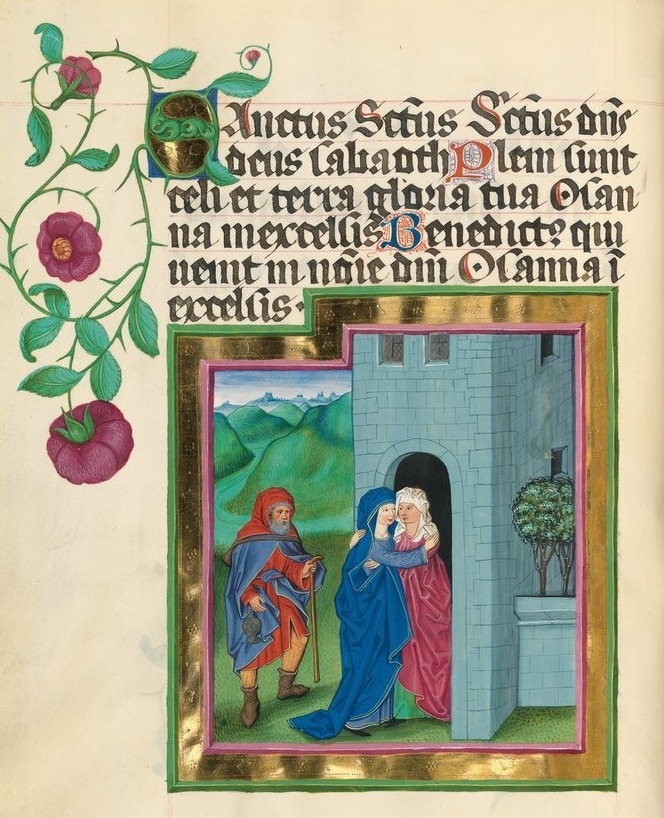 Sanctus Sctūs Sctūs dn̄s
deus sabaoth Pleni sunt
celi et terra gloria tua Osan
na in excelsis Benedictꝰ qui
uenit in nōie dn̄i Osanna ī
excelsis·